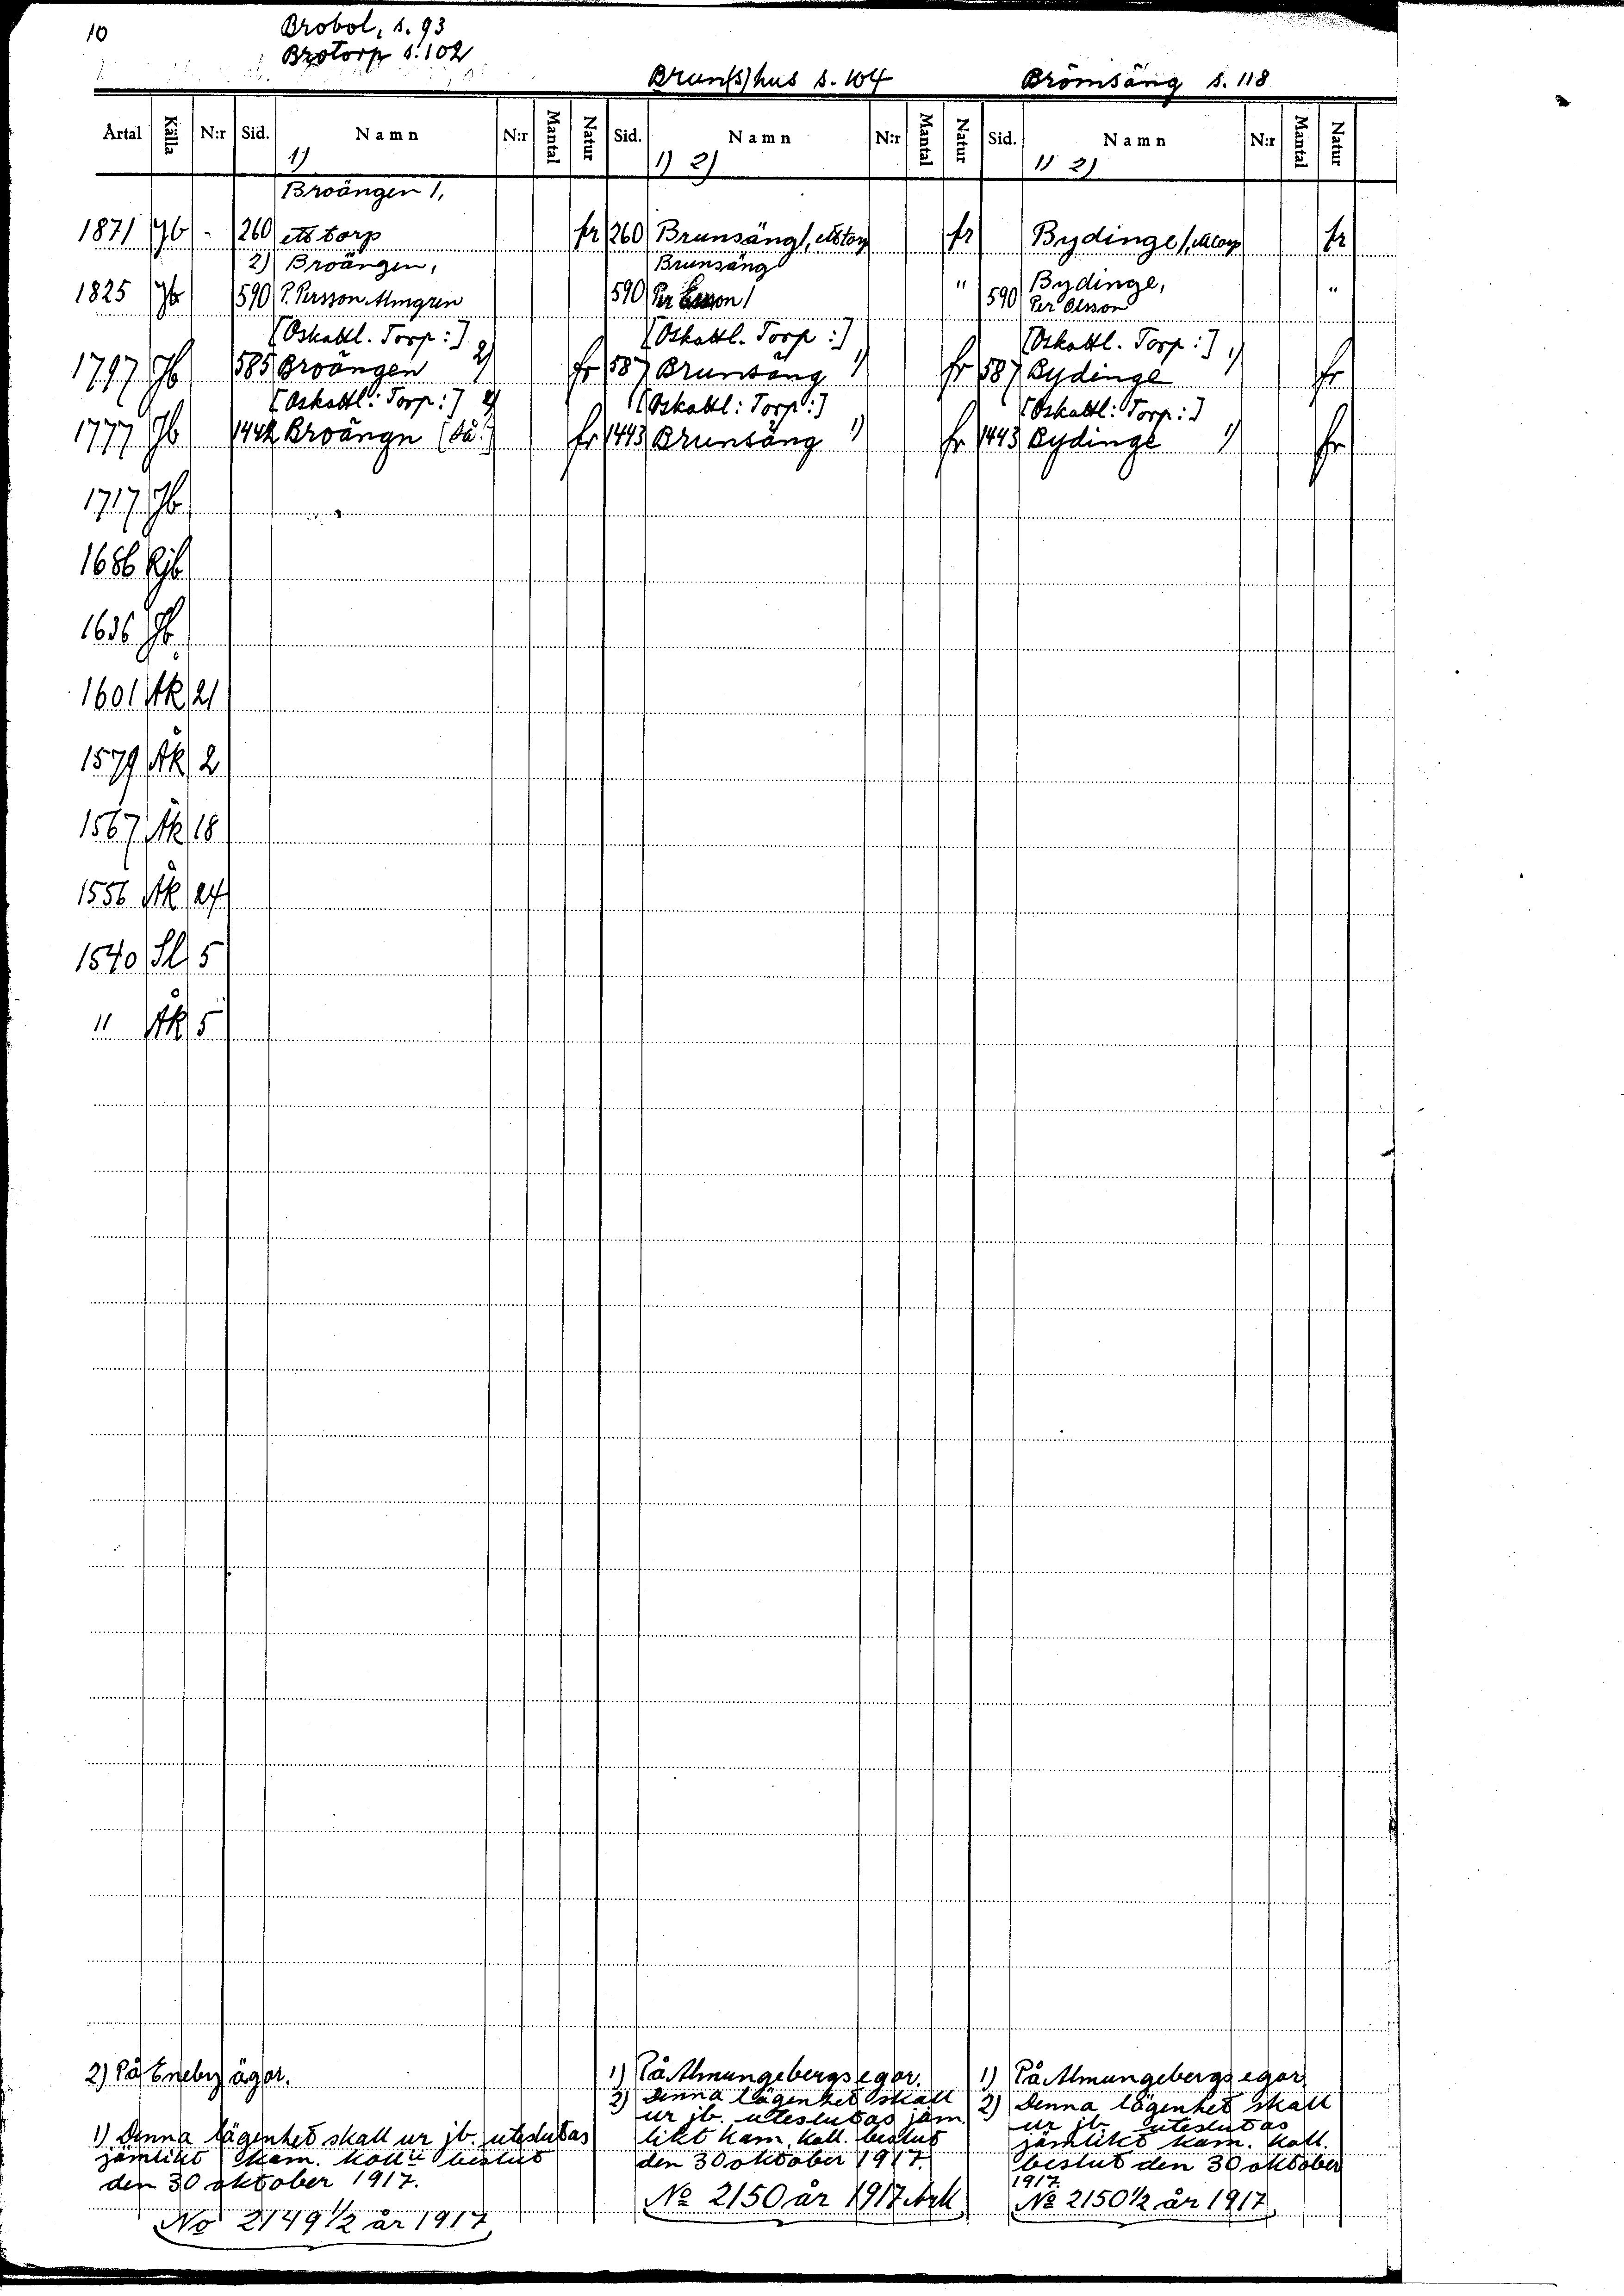 10
Brobol, s. 93
Brotorp s. 102
Brun(s)hus s. 104
Brömsäng s. 118
Årtal Källa N:r Sid. Namn N:r Mantal Natur Sid. Namn N:r Mantal Natur Sid. Namn N:r Mantal Natur
1) 1) 2) 1) 2)
Broängen 1,
1871 Jb - 260 ett torp fr 260 Brunsäng 1, ett torp fr Bydinge 1, ett torp fr
2) Broängen, Brunsäng Bydinge,
1825 Jb 590 P. Persson Almgren 590 Per " 590 Per Olsson "
[Oskattl. Torp:] [Oskattl. Torp:] [Oskattl. Torp:]
1797 Jb 585 Broängen 2) fr 587 Brunsäng 1) fr 587 Bydinge 1) fr
[Oskattl: Torp:] 2) [Oskattl: Torp:] [Oskattl: Torp:]
1777 Jb 1442 Broängn (så!) fr 1443 Brunsäng 1) fr 1443 Bydinge 1) fr
1717 Jb
1686 Rjb
1636 Jb
1601 Åk 21
1579 Åk 2
1567 Åk 18
1556 Åk 24
1540 Sl 5
" Åk 5
2) På Eneby ägor.
1) Denna lägenhet skall ur jb. uteslutas
jämlikt kam. koll:ii beslut
den 30 oktober 1917.
No 2149 1/2 år 1917
1) På Almungebergs egor.
2) Denna lägenhet skall
ur jb. uteslutas jäm
likt kam. koll. beslut
den 30 oktober 1917.
No 2150 år 1917
1) På Almungebergs egor
2) Denna lägenhet skall
ur jb uteslutas
jämlikt kam. koll.
beslut den 30 oktober
1917.
No 2150 1/2 år 1917